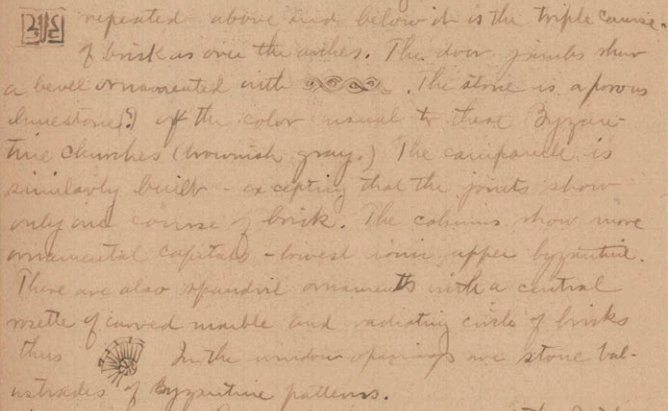 repeated above and below it is the triple course
of brick as over the arches. The door jambs show
a bevel ornamented with . The stone is a porous
limestone(?) of the color usual to these Byzan-
tine churches (brownish gray.) The campanile is
similarly built - excepting that the joints show
only one course of brick. The columns show more
ornamental capitals - lowest ionic upper byzantine.
There are also spandril ornaments with a central
rosette of carved marble and radiating circle of bricks
thus In the window openings are stone bal-
ustrades of Byzantine patterns.